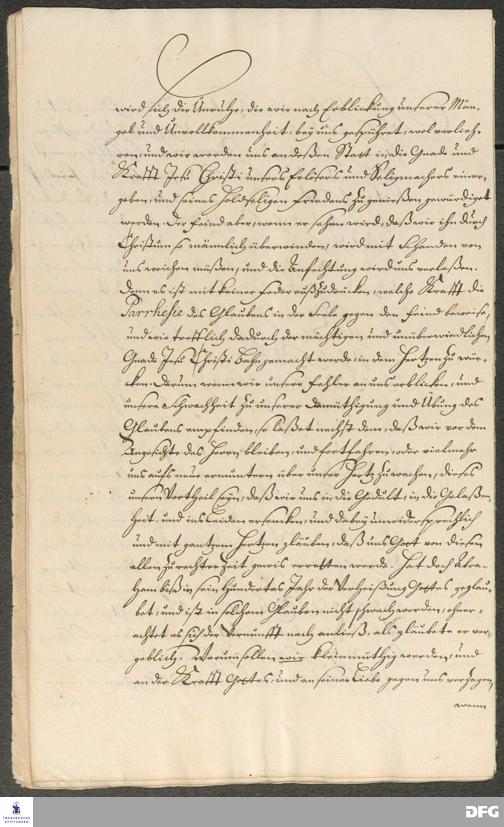 wird sich die Unruhe, die wir nach Erblickung unserer Män-
gel und Unvollkommenheit, bey uns gespühret, wol verlieh-
ren, und wir werden uns an deßen Statt in die Gnade und
Krafft Jesu Christi unsers Erlösers und Seligmachers einer-
geben, und seines holdseligen Friedens zu genießen gewürdiget
werden. Der Feind aber, wenn er sehen wird, daß wir ihn durch
Christum so männlich überwinden, wird mit Schanden von
uns weichen müßen, und die Anfechtung wird uns verlaßen.
Denn es ist mit keiner Feder auszudrücken, welche Krafft die
Parrhesie des Glaubens in der Seele gegen den Feind beweise,
und wie trefflich dadurch der mächtigen und unüberwindlichen
Gnade Jesu Christi Bahn gemacht werde, in dem Hertzen zu wür-
cken. Darum wenn wir unsere Fehler an uns erblicken, und
unsere Schwachheit zu unserer Demüthigung und Übung des
Glaubens empfinden, so laßet nechst dem, daß wir vor dem
Angesichte des Herrn bleiben, und fortfahren, oder vielmehr
uns aufs neue ermuntern über unser Hertz zu wachen, dieses
unsern Vortheil seyn, daß wir uns in die Gedult, in die Gelaßen-
heit, und ins Leiden ersencken, und dabey unwidersprechlich
und mit gantzem Hertzen gläuben, daß uns Gott von diesen
allen zu rechter Zeit gewis erretten werde. Hat doch Abra-
ham biß in sein hundertes Jahr der Verheißung Gottes geglau-
bet, und ist in solchem Glauben nicht schwach worden, ohner-
achtet es sich der Vernunfft nach anließ, als glaubete er ver-
geblich: Warum sollen wir kleinmüthig werden, und
an der Krafft Gottes, und an seiner Liebe gegen uns verzagen,
wenn
FRANCKESCHE
STIFTUNGEN
DFG